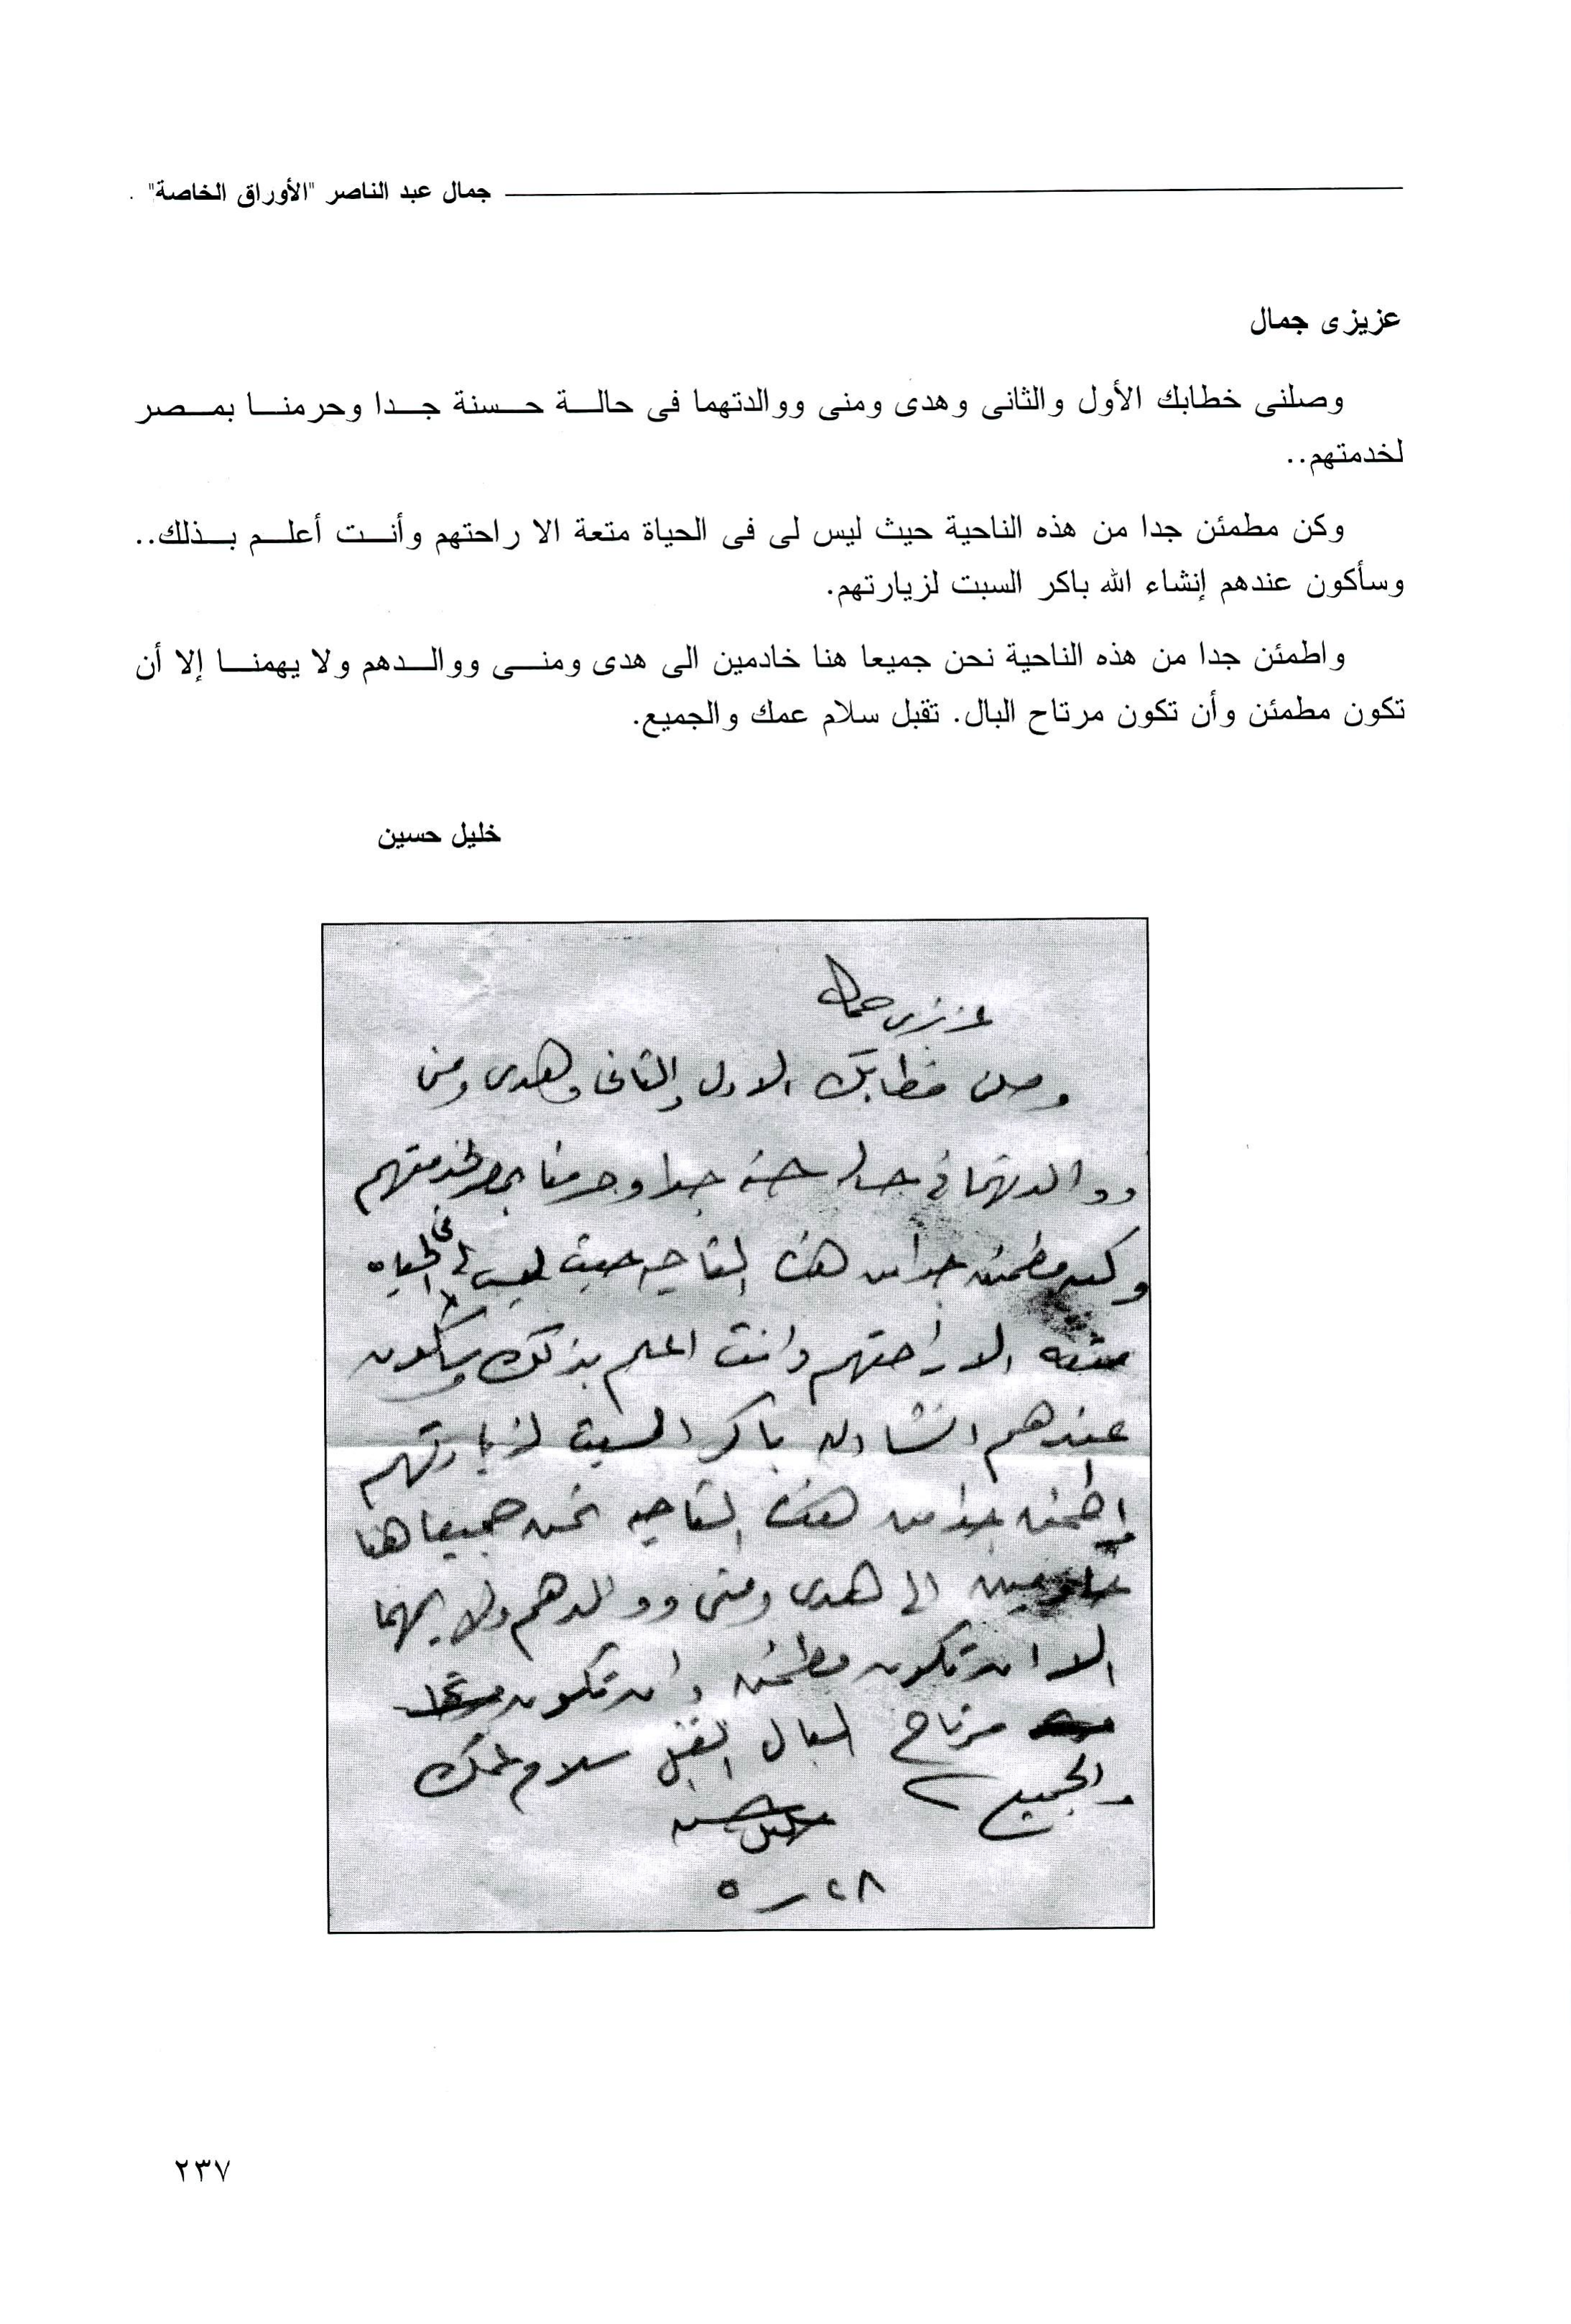 جمال عبد الناصر "الأوراق الخاصة"
عزيزى جمال
وصلنى خطابك الأول والثانى وهدى ومنى ووالدتهما فى حالة حسنة جدا وحرمنا بمصر
لخدمتهم..
وكن مطمئن جدا من هذه الناحية حيث ليس لى فى الحياة متعة الا راحتهم وأنت أعلم بذلك..
وسأكون عندهم إنشاء الله باكر السبت لزيارتهم.
واطمئن جدا من هذه الناحية نحن جميعا هنا خادمين الى هدى ومنى ووالدهم ولا يهمنا إلا أن
تكون مطمئن وأن تكون مرتاح البال. تقبل سلام عمك والجميع.
خليل حسين
عزيزى جمال
وصلنى خطابك الاول والثانى وهدى ومنى
ووالدتهما فى حاله حسنه جدا وحرمنا بمصر لخدمتهم
وكن مطمئن جدا من هذه الناحيه حيث ليس لى فى الحياه
متعه الا راحتهم وانت اعلم بذلك وسأكون
عندهم انشاء الله باكر السبت لزيارتهم
واطمئن جدا من هذه الناحيه نحن جميعا هنا
خادمين الى هدى ومنى ووالدهم ولا يهمنا
الا ان تكون مطمئن وان تكون
مرتاح البال اتقبل سلام عمك
والجميع
خليل حسين
٢٨ ـ ٥
٢٣٧